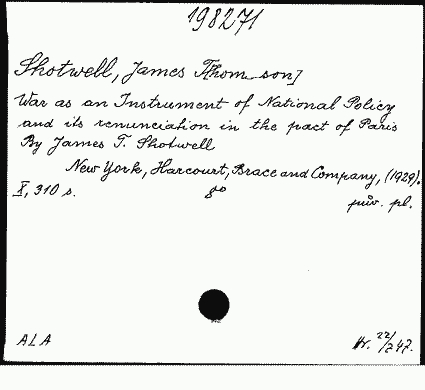 198271
Shotwell, James T[hom son]
War as an Instrument of National Policy
and its renunciation in the pact of Paris
By James T. Shotwell
New York, Harcourt, Brace and Company, (1929).
X, 310 s. 8° pův. pl.
ALA 22/247.